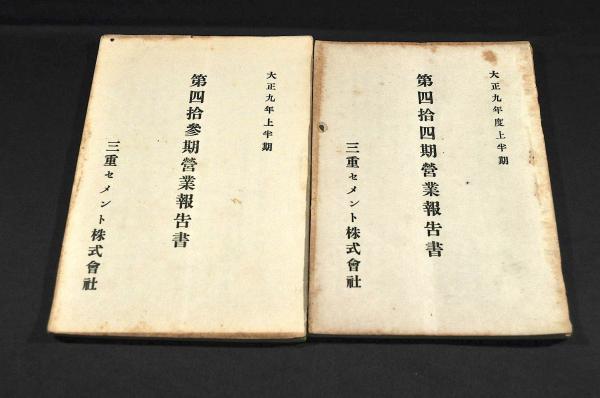 大正九年上半期
第四拾參期營業報告書
三重セメント株式會社
大正九年度上半期
第四拾四期營業報告書
三重セメント株式會社